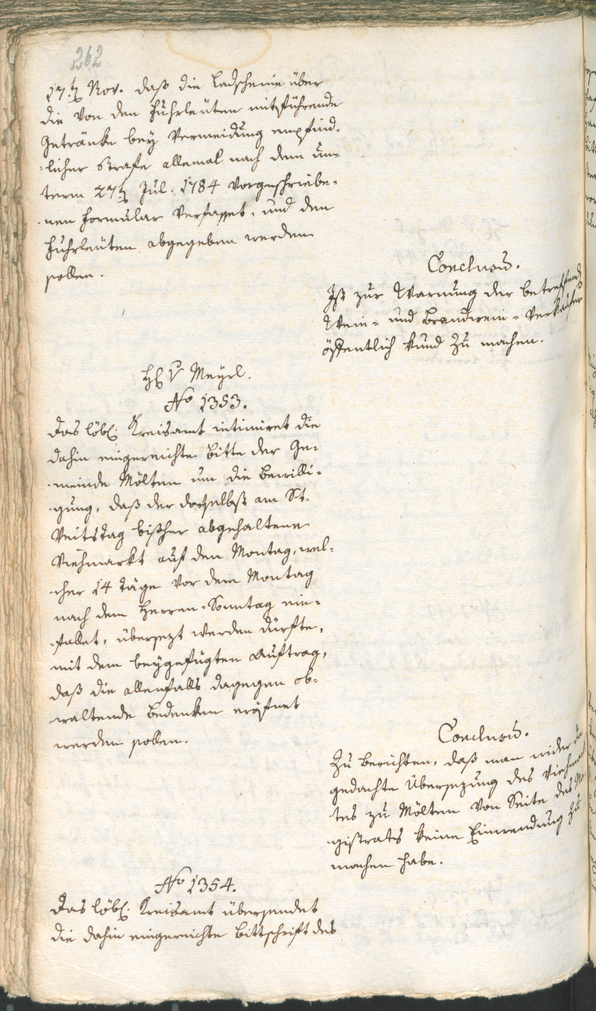 262
17t. Nov. daß die Ladscheine über
die von den Fuhrleuten mitführende
Getränke bey Vermeidung empfind-
licher Strafe allemal nach dem un-
term 27t. Jul. 1784 vorgeschriebe-
nen Formular verfasset, und den
Fuhrleuten abgegeben werden
sollen.
Conclusum.
Ist zur Warnung der betreffend
Wein- und Brandwein-Verkäufer
öffentlich kund zu machen.
H. v Meyrl.
No 1353.
Das löbl. Kreisamt intimiret die
dahin eingereichte Bitte der Ge-
meinde Mölten um die Bewilli-
gung, daß der daselbst am St.
Veitstag bisher abgehaltene
Viehmarkt auf den Montag, wel-
cher 14 Täge vor dem Montag
nach dem Herren-Sonntag ein-
fallet, übersezt werden dürfte,
mit dem beygefügten Auftrag,
daß die allenfalls dagegen ob-
waltende Bedenken eröfnet
werden sollen.
Conclusum.
Zu berichten, daß man wider die
gedachte Übersezung des Viehmark-
tes zu Mölten von Seite des Ma-
gistrats keine Einwendung zu
machen habe.
No 1354.
Das löbl. Kreisamt übersendet
die dahin eingereichte Bittschrift des